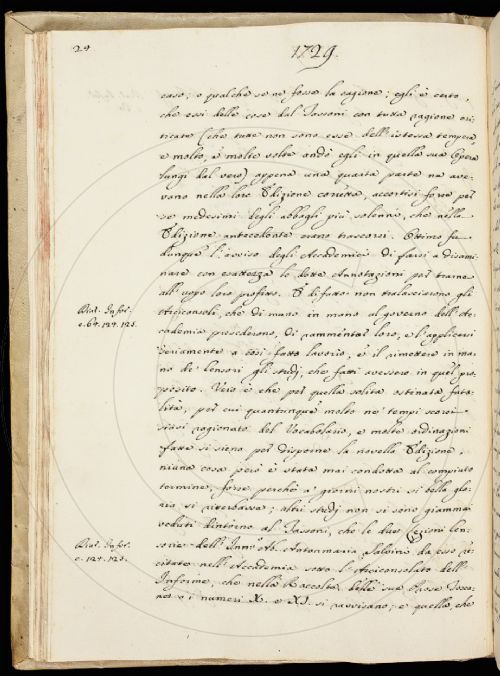 24
1729.
caso, o qualche se ne fosse la cagione; egli è certo,
che essi delle cose dal Tassoni con tutta ragione cri-
ticate (che tutte non sono esse dell'istessa tempera
e molto, e molte volte andò egli in quella sua Opera
lungi dal vero) appena una quarta parte ne ave-
vano nella loro Edizione corretta, accortisi forse per
se medesimi degli abbagli più solenni, che nella
Edizione antecedente erano trascorsi. Ottimo fu
dunque l'avviso degli Accademici di farsi a disami-
nare con esattezza le dotte Annotazioni per trarne
all'uopo loro profitto. E di fatto non tralasciarono gli
Arciconsoli, che di mano in mano al governo dell'Ac-
cademia presederono, di rammentar loro, e l'applicarsi
seriamente a così fatto lavoro, e il rimettere in ma-
no de' Censori gli studj, che fatti avessero in quel pro-
posito. Vero è che per quella solita ostinata fata-
lità, per cui quantunque molto ne' tempi scorsi
siasi ragionato del Vocabolario, e molte ordinazioni
fatte si sieno per disporne la novella Edizione,
niuna cosa però è stata mai condotta al compiuto
termine, forse perchè a' giorni nostri sì bella glo-
ria si riserbasse; altri studj non si sono giammai
veduti dintorno al Tassoni, che le due Lezioni Cen-
sorie dell'Innom. Ab. Antonmaria Salvini da esso re-
citate nell'Accademia sotto l'Arciconsolato dell'
Informe, che nella Raccolta delle sue Prose Tosca-
ne a i numeri X. e XI. si ravvisano; e quella, che
Diar. Infor.
c. 64. 124. 125.
Diar. Infor.
c. 124. 125.